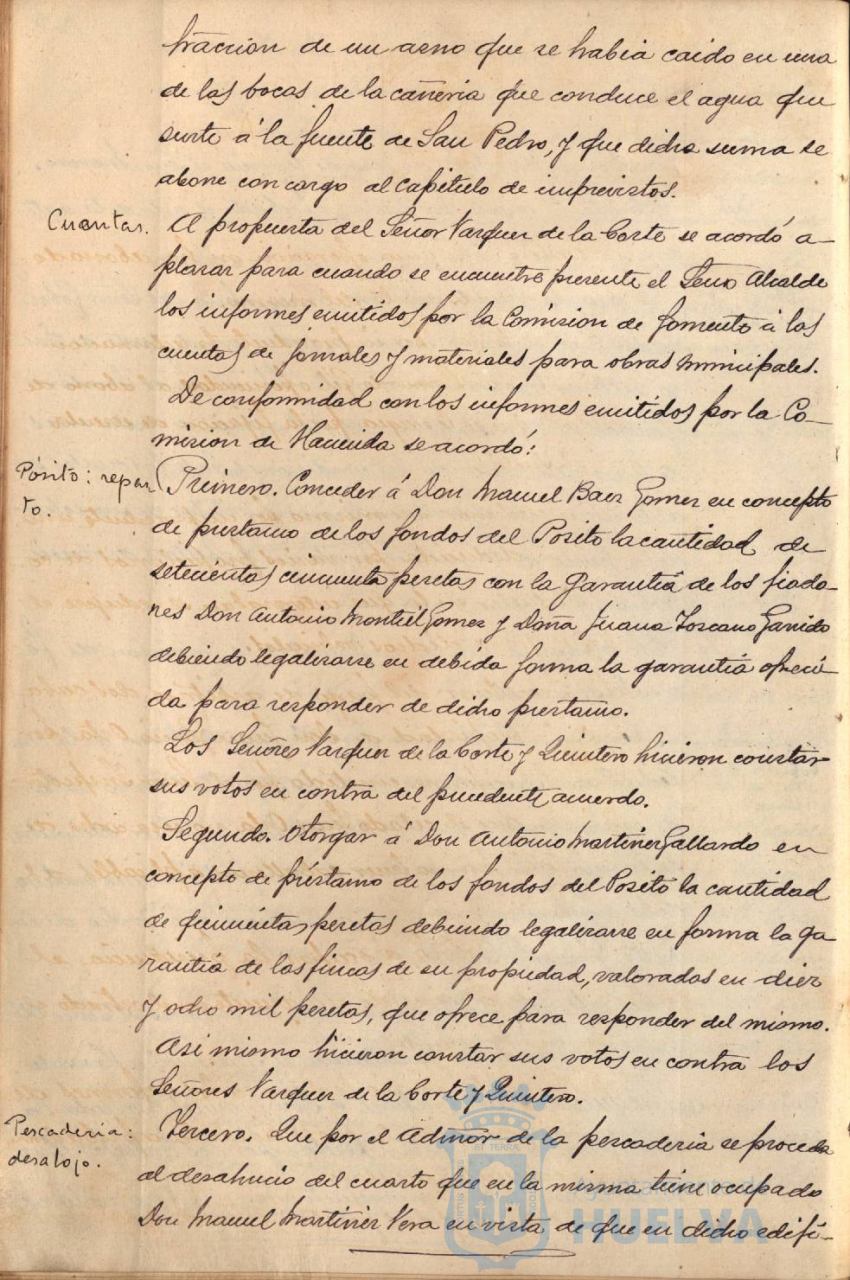 traccion de un asno que se habia caido en una
de las bocas de la cañeria que conduce el agua que
surte á la fuente de San Pedro, y que dicha suma se
abone con cargo al capitulo de imprevistos.
Cuentas.
A propuesta del Señor Vazquez de la Corte se acordó a-
plazar para cuando se encuentre presente el Señor Alcalde
los informes emitidos por la Comision de fomento á las
cuentas de jornales y materiales para obras municipales.
De conformidad con los informes emitidos por la Co-
mision de Hacienda se acordó:
Pósito: repar
to.
Primero. Conceder á Don Manuel Baez Gomez en concepto
de prestamo de los fondos del Posito la cantidad de
setecientas cincuenta pesetas con la garantia de los fiado-
res Don Antonio Montiel Gomez y Doña Juana Toscano Garrido
debiendo legalizarse en debida forma la garantia ofreci-
da para responder de dicho prestamo.
Los Señores Vazquez de la Corte y Quintero hicieron constar
sus votos en contra del precedente acuerdo.
Segundo. Otorgar á Don Antonio Martinez Gallardo en
concepto de préstamo de los fondos del Posito la cantidad
de quinientas pesetas debiendo legalizarse en forma la ga
rantia de las fincas de su propiedad, valoradas en diez
y ocho mil pesetas, que ofrece para responder del mismo.
Asi mismo hicieron constar sus votos en contra los
Señores Vazquez de la Corte y Quintero.
Pescaderia:
desalojo.
Tercero. Que por el Admor de la pescaderia se proceda
al desahucio del cuarto que en la misma tiene ocupado
Don Manuel Martinez Vera en vista de que en dicho edifi-
HUELVA